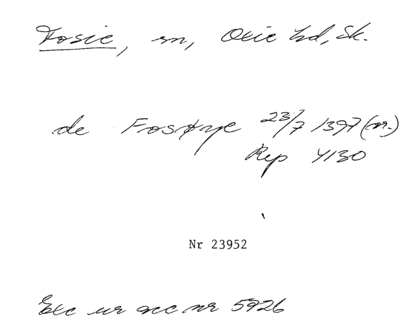 Fosie, sn, Oxie hd, Sk.
de Fosøye 23/7 1397 (or.)
Rep 4130
Nr 23952
Exc ur acc nr 5926